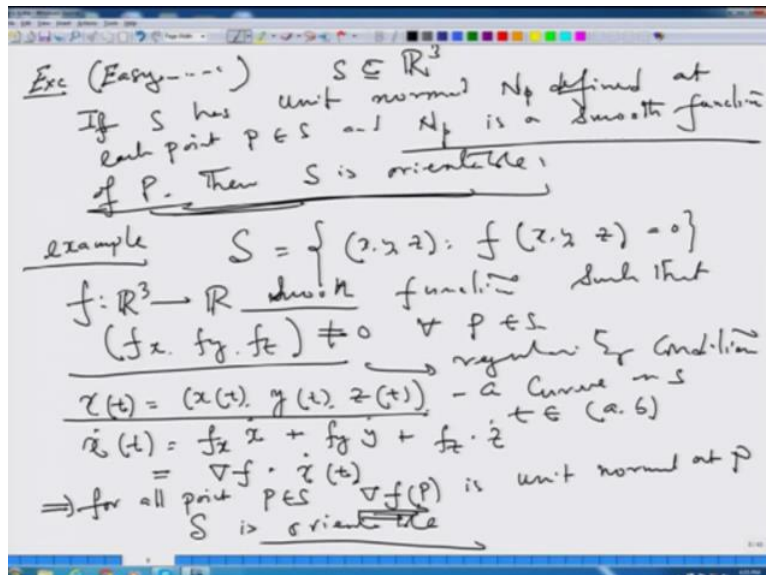 Exc (Easy-----) S ⊆ ℝ³
If S has unit normal Np defined at
each point p ∈ S and Np is a smooth function
of P. Then S is orientable.
example S = { (x, y, z) : f (x, y, z) = 0}
f: ℝ³ → ℝ smooth function such that
(fx, fy, fz) ≠ 0 ∀ p ∈ S
→ regularity condition
γ(t) = (x(t), y(t), z(t)) - a curve in S
t ∈ (a, b)
γ̇(t) = fx ẋ + fy ẏ + fz · ż
= ∇f · γ̇(t)
⇒ for all point p ∈ S ∇f(P) is unit normal at p
S is orientable